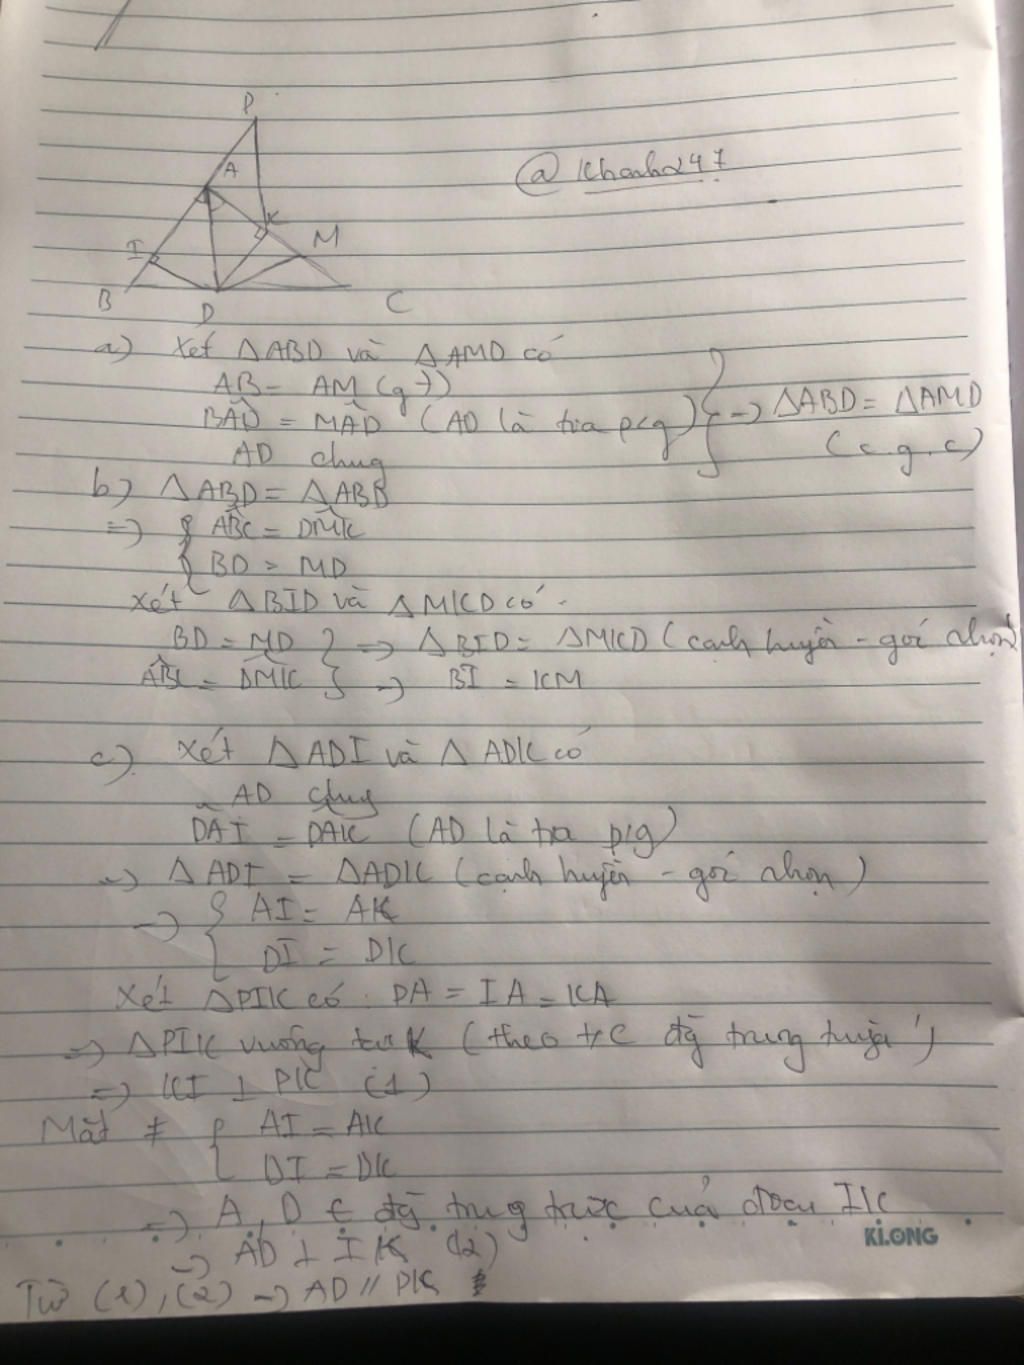 P
A
@Khanh247
K
M
I
B
D
C
a) Xét ΔABD và ΔAMD có
AB = AM (gt)
BÂD = MÂD (AD là tia p/g) } => ΔABD = ΔAMD
AD chug
(c.g.c)
b) ΔABD = ΔABB
=> { ABC = DMK
BD = MD
Xét ΔBID và ΔMKD có
BD = MD } => ΔBID = ΔMKD (cạnh huyền - góc nhọn)
ABC = DMK } => BI = KM
c) Xét ΔADI và ΔADK có
AD chug
DAI = DAK (AD là tia p/g)
=> ΔADI = ΔADK (cạnh huyền - góc nhọn)
=> { AI = AK
DI = DK
Xét ΔPIK có PA = IA = KA
=> ΔPIK vuông tại K (theo t/c đg trung tuyến)
=> KI ⊥ PK (1)
Mặt ≠ { AI = AK
DI = DK
=> A, D ∈ đg trung trực của đoạn IK
KLONG
=> AD ⊥ IK (2)
Từ (1), (2) => AD // PK